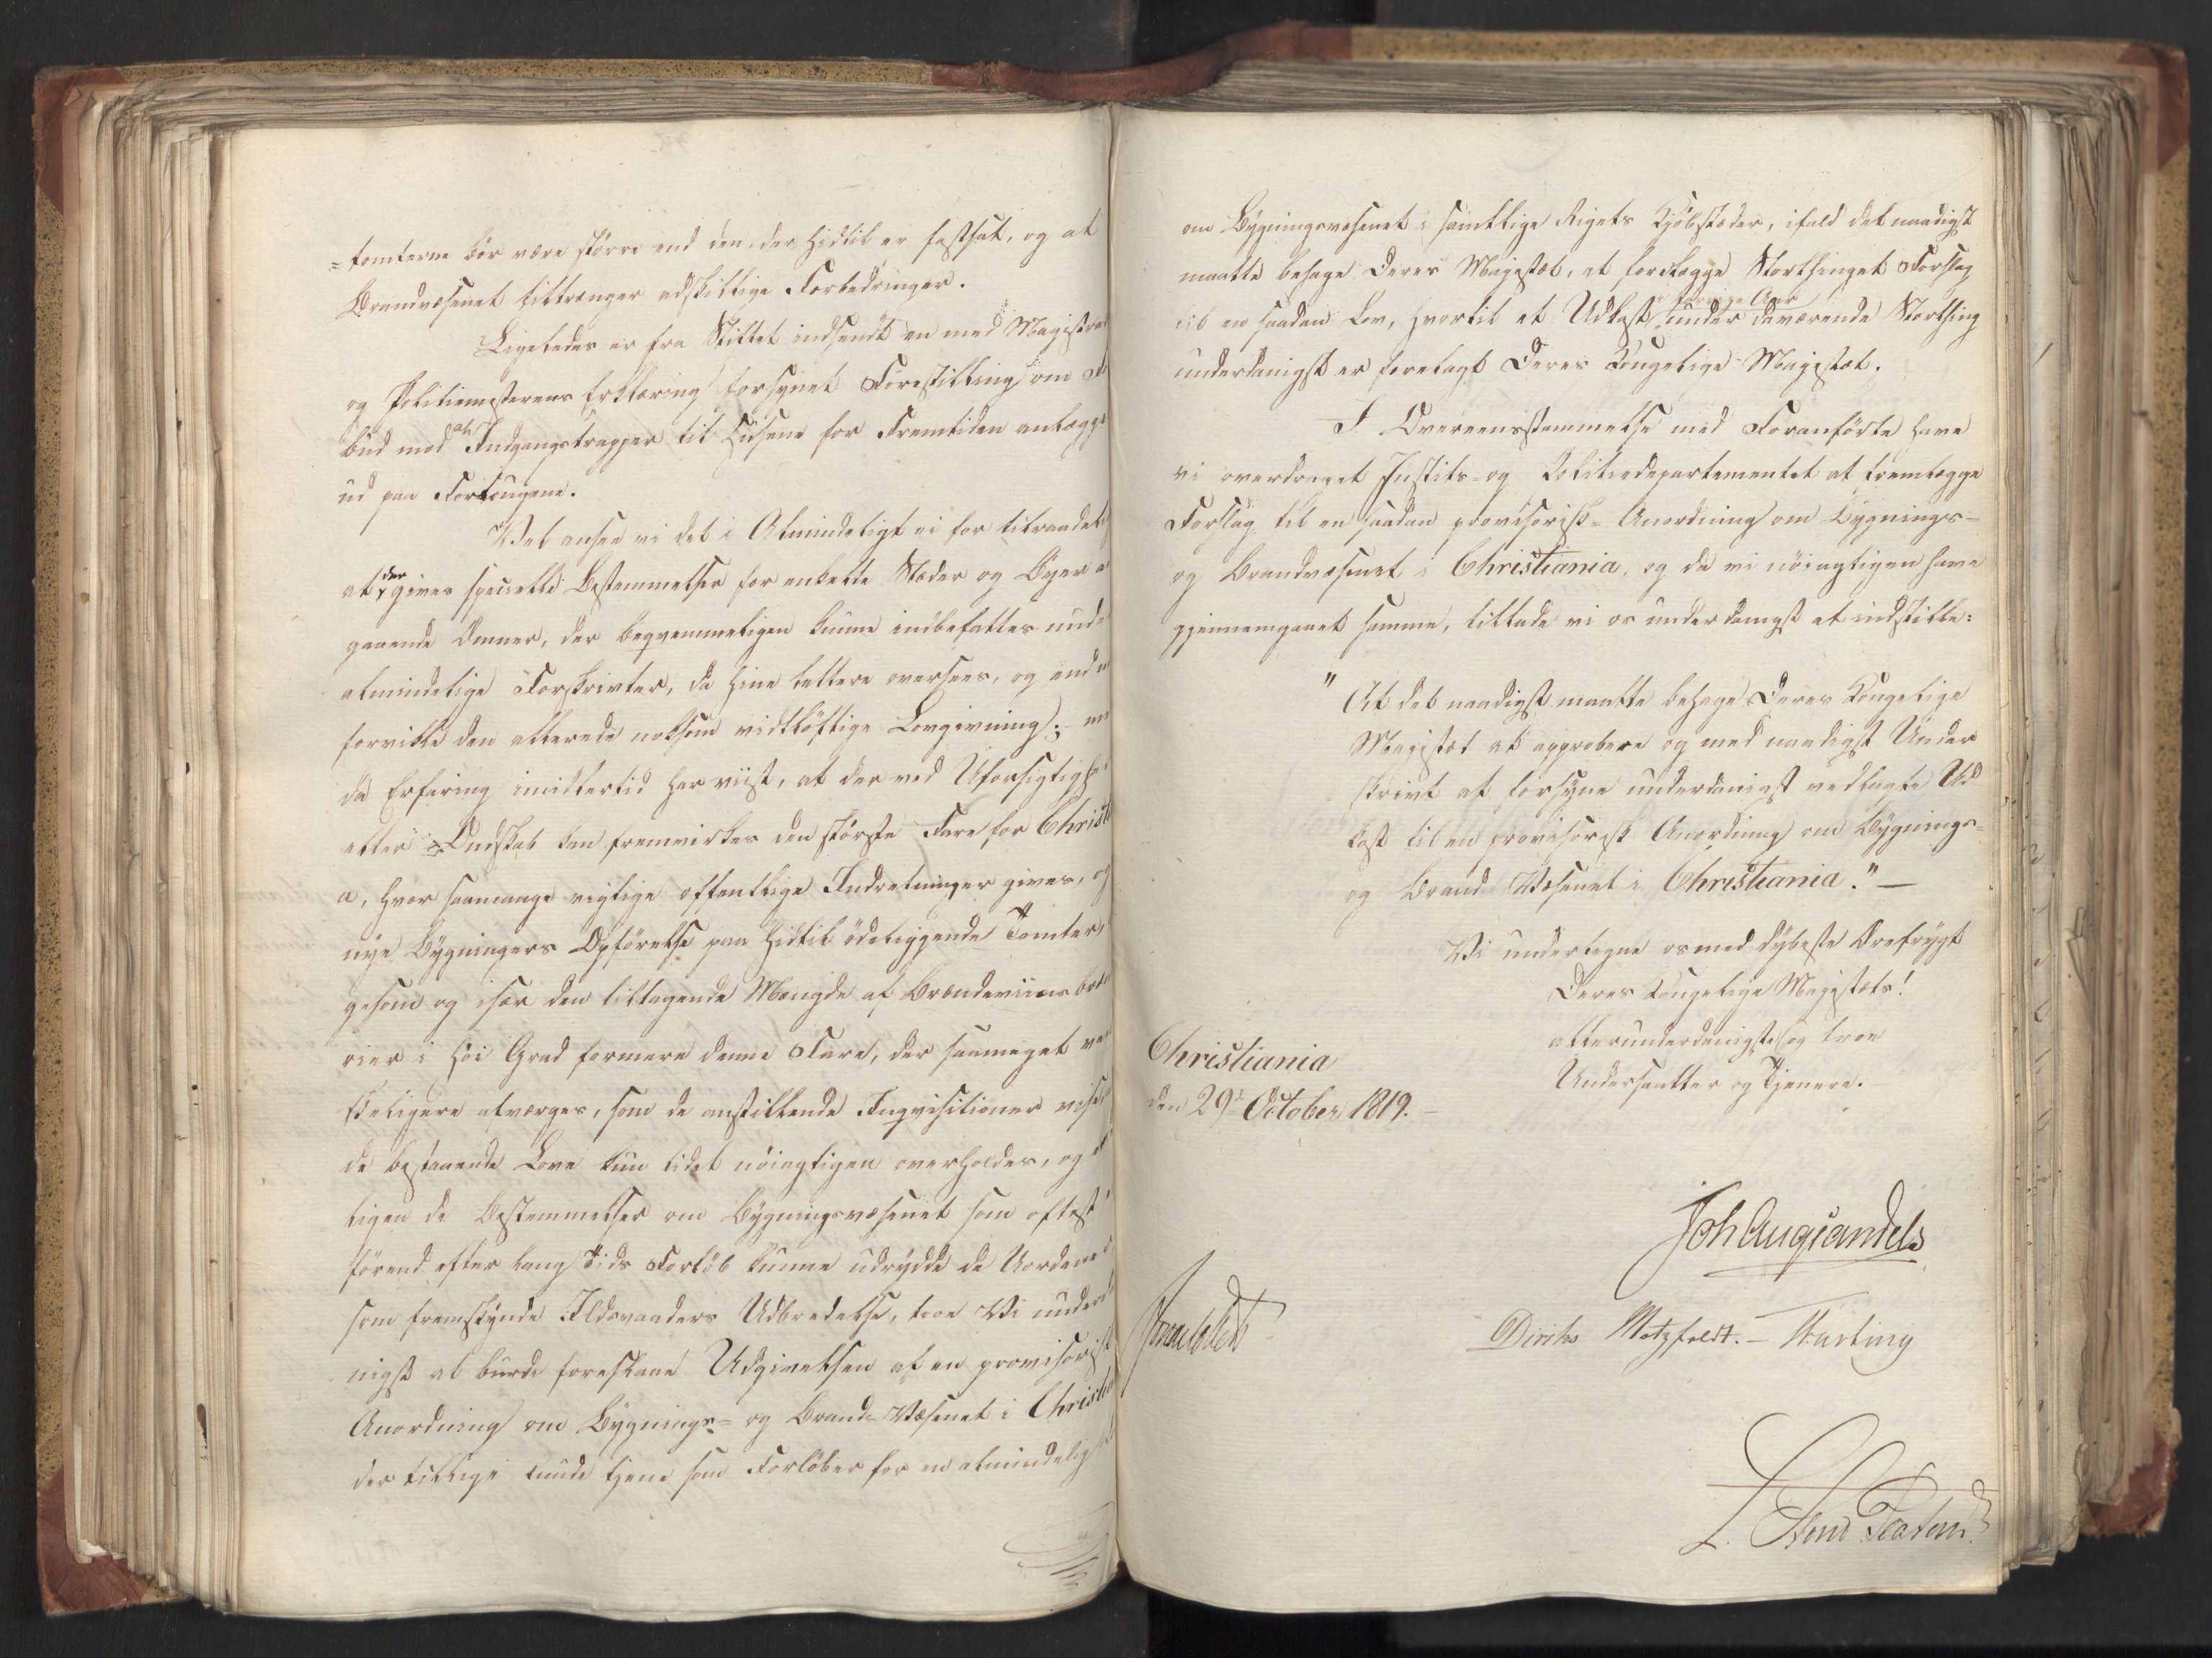 =tomterne bör være större end den, der hidtil er fastsat, og at
Brandvæsenet tiltrænger adskillige Forbedringer.
Ligeledes er fra Stiftet indsendt en med Magistra
og Politiemesterens Erklæring forsynet Forestilling om F
bud mod at Indgangstrapper til Husene for Fremtiden anlægge
ud paa Fortougene.
Vel ansee vi det i Almindeligt ei for tilraadeli
at der gives specielle Bestemmelser for enkelte Stæder og Byer a
gaaende Emner, der beqvemmeligen kunne indbefattes unde
almindelige Forskrivter, da hine lettere oversees, og end m
forvikle den allerede noksom vidtlöftige Lovgivning; m
da Erfaring imidlertid har viist, at der ved Uforsigtighe
eller Ondskab kan fremvirkes den störste Fare for Christi
a, hvor saamange vigtige offentlige Indretninger gives, og
nye Bygningers Opförelse paa hidtil ödeliggende Tomter,
gesom og især den tiltagende Mængde af Brændeviinsbræn
rier i höi Grad formere denne Fare, der saameget va
skeligere afværges, som de anstillende Inqvisitioner vise
de bestaaende Love kun lidet nöiagtigen overholdes, og
ligen de Bestemmelser om Bygningsvæsenet som oftest
förend efter lang Tids Forlöb kunne udrydde de Uordene
som fremskynde Ildsvaaders Udbredelse, troe Vi underd
nigst at burde foreslaae Udgivelsen af en provisorisk
Anordning om Bygnings- og Brand-Væsenet i Christia
der tillige kunde tjene som Forlöber for en almindelig
om Bygningsvæsenet i samtlige Rigets Kjöbstæder, ifald det naadigst
maatte behage Deres Majestæt, at forelægge Storthinget Forslag
til en saadan Lov, hvortil et Udkast i forrige Aar under daværende Storthing
underdanigst er forelagt Deres Kongelige Majestæt.
I Overeensstemmelse med Foranförte have
vi overdraget Justits- og Politiedepartementet at fremlægge
Forslag til en saadan provisorisk Anordning om Bygnings-
og Brandvæsenet i Christiania, og da vi nöiagtigen have
gjennemgaaet samme, tillade vi os underdanigst at indstille:
"At det naadigst maatte behage Deres Kongelige
Majestæt at approbere og med naadigst Under
skrivt at forsyne underdanigst vedlagte Ud
kast til en provisorisk Anordning om Bygnings-
og Brand-Væsenet i Christiania." —
Vi undertegne os med dybeste Ærefrygt
Deres Kongelige Majestæts!
allerunderdanigste og troe
Undersaatter og Tjenere.
Christiania
den 29de October 1819. —
Joh Aug Sandels
Diriks Motzfeldt. —